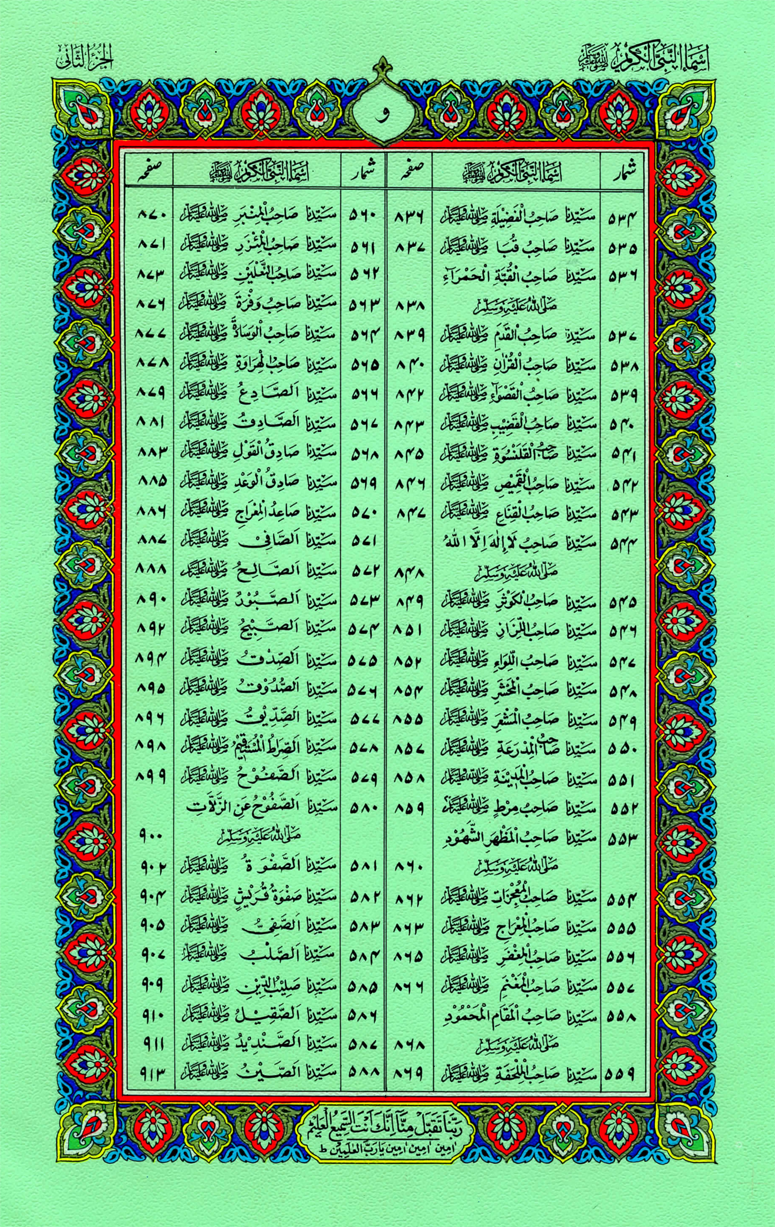 اسماء النبی الکریم ﷺ
الجزء الثانی
و
شمار اسماء النبی الکریم ﷺ صفحہ
۵۳۴ سیدنا صاحب الفضیلة ﷺ ۸۳۶
۵۳۵ سیدنا صاحب قبا ﷺ ۸۳۷
۵۳۶ سیدنا صاحب القبة الحمرآء
صلى الله عليه وسلم ۸۳۸
۵۳۷ سیدنا صاحب القدم ﷺ ۸۳۹
۵۳۸ سیدنا صاحب القرآن ﷺ ۸۴۰
۵۳۹ سیدنا صاحب القصوآء ﷺ ۸۴۲
۵۴۰ سیدنا صاحب القضیب ﷺ ۸۴۳
۵۴۱ سیدنا صاحب القلنسوة ﷺ ۸۴۵
۵۴۲ سیدنا صاحب القمیص ﷺ ۸۴۶
۵۴۳ سیدنا صاحب القناع ﷺ ۸۴۷
۵۴۴ سیدنا صاحب لا اله الا الله
صلى الله عليه وسلم ۸۴۸
۵۴۵ سیدنا صاحب الکوثر ﷺ ۸۴۹
۵۴۶ سیدنا صاحب اللزاز ﷺ ۸۵۱
۵۴۷ سیدنا صاحب اللواء ﷺ ۸۵۲
۵۴۸ سیدنا صاحب المحشر ﷺ ۸۵۴
۵۴۹ سیدنا صاحب المشعر ﷺ ۸۵۵
۵۵۰ سیدنا صاحب المدرعة ﷺ ۸۵۷
۵۵۱ سیدنا صاحب المدینة ﷺ ۸۵۸
۵۵۲ سیدنا صاحب مرط ﷺ ۸۵۹
۵۵۳ سیدنا صاحب المظهر الشهود
صلى الله عليه وسلم ۸۶۰
۵۵۴ سیدنا صاحب المعجزات ﷺ ۸۶۲
۵۵۵ سیدنا صاحب المعراج ﷺ ۸۶۳
۵۵۶ سیدنا صاحب المغفر ﷺ ۸۶۵
۵۵۷ سیدنا صاحب المغنم ﷺ ۸۶۶
۵۵۸ سیدنا صاحب المقام المحمود
صلى الله عليه وسلم ۸۶۸
۵۵۹ سیدنا صاحب الملحفة ﷺ ۸۶۹
شمار اسماء النبی الکریم ﷺ صفحہ
۵۶۰ سیدنا صاحب المنبر ﷺ ۸۷۰
۵۶۱ سیدنا صاحب المئزر ﷺ ۸۷۱
۵۶۲ سیدنا صاحب النعلین ﷺ ۸۷۳
۵۶۳ سیدنا صاحب وفرة ﷺ ۸۷۶
۵۶۴ سیدنا صاحب الوسادة ﷺ ۸۷۷
۵۶۵ سیدنا صاحب الهراوة ﷺ ۸۷۸
۵۶۶ سیدنا الصادع ﷺ ۸۷۹
۵۶۷ سیدنا الصادق ﷺ ۸۸۱
۵۶۸ سیدنا صادق القول ﷺ ۸۸۳
۵۶۹ سیدنا صادق الوعد ﷺ ۸۸۵
۵۷۰ سیدنا صاعد المعراج ﷺ ۸۸۶
۵۷۱ سیدنا الصافی ﷺ ۸۸۷
۵۷۲ سیدنا الصالح ﷺ ۸۸۸
۵۷۳ سیدنا الصبود ﷺ ۸۹۰
۵۷۴ سیدنا الصبیح ﷺ ۸۹۲
۵۷۵ سیدنا الصدق ﷺ ۸۹۴
۵۷۶ سیدنا الصدوق ﷺ ۸۹۵
۵۷۷ سیدنا الصدیق ﷺ ۸۹۶
۵۷۸ سیدنا الصراط المستقیم ﷺ ۸۹۸
۵۷۹ سیدنا الصفوح ﷺ ۸۹۹
۵۸۰ سیدنا الصفوح عن الزلات
صلى الله عليه وسلم ۹۰۰
۵۸۱ سیدنا الصفوة ﷺ ۹۰۲
۵۸۲ سیدنا صفوة قریش ﷺ ۹۰۴
۵۸۳ سیدنا الصفی ﷺ ۹۰۵
۵۸۴ سیدنا الصلب ﷺ ۹۰۷
۵۸۵ سیدنا صلیب الدین ﷺ ۹۰۹
۵۸۶ سیدنا الصقیل ﷺ ۹۱۰
۵۸۷ سیدنا الصندید ﷺ ۹۱۱
۵۸۸ سیدنا الصین ﷺ ۹۱۳
ربنا تقبل منا انک انت السمیع العلیم
امین امین امین یا رب العلمین ط